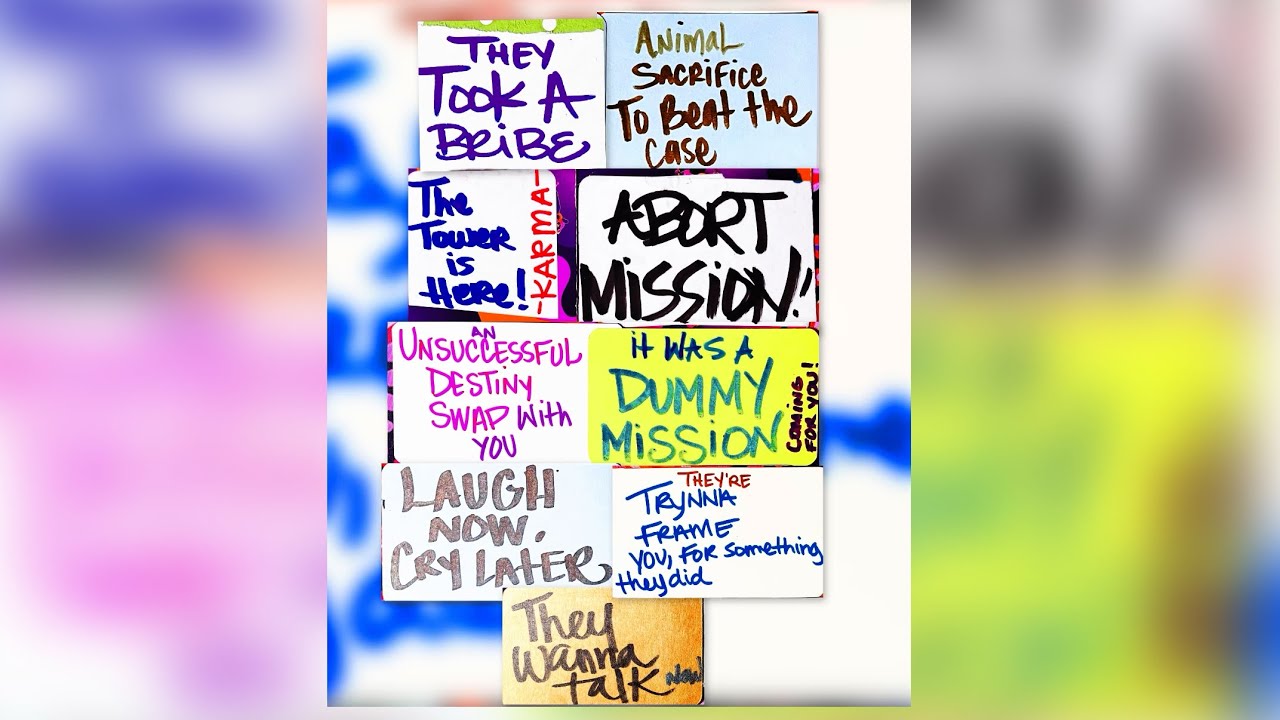 THEY
TOOK A
BRIBE
ANIMAL
SACRIFICE
TO BEAT the
CASE
The
TOWER
is
HERE!
-KARMA-
ABORT
MISSION!
AN
UNSUCCESSFUL
DESTINY
SWAP With
YOU
it WAS A
DUMMY
MISSION
COMING
FOR YOU!
LAUGH
NOW.
CRY LATER
THEY'RE
TRYNNA
FRAME
YOU, FOR something
they did
They
wanna
talk NOW